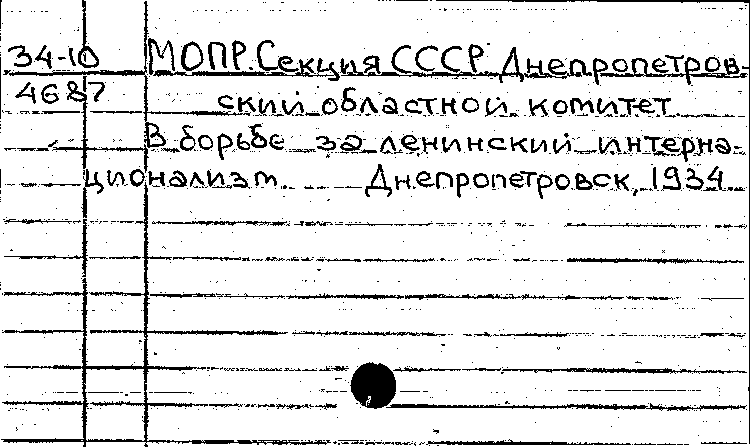 34-10 МОПР. Секция СССР. Днепропетров-
4687 ский областной комитет
В борьбе за ленинский интерна-
ционализм. Днепропетровск, 1934